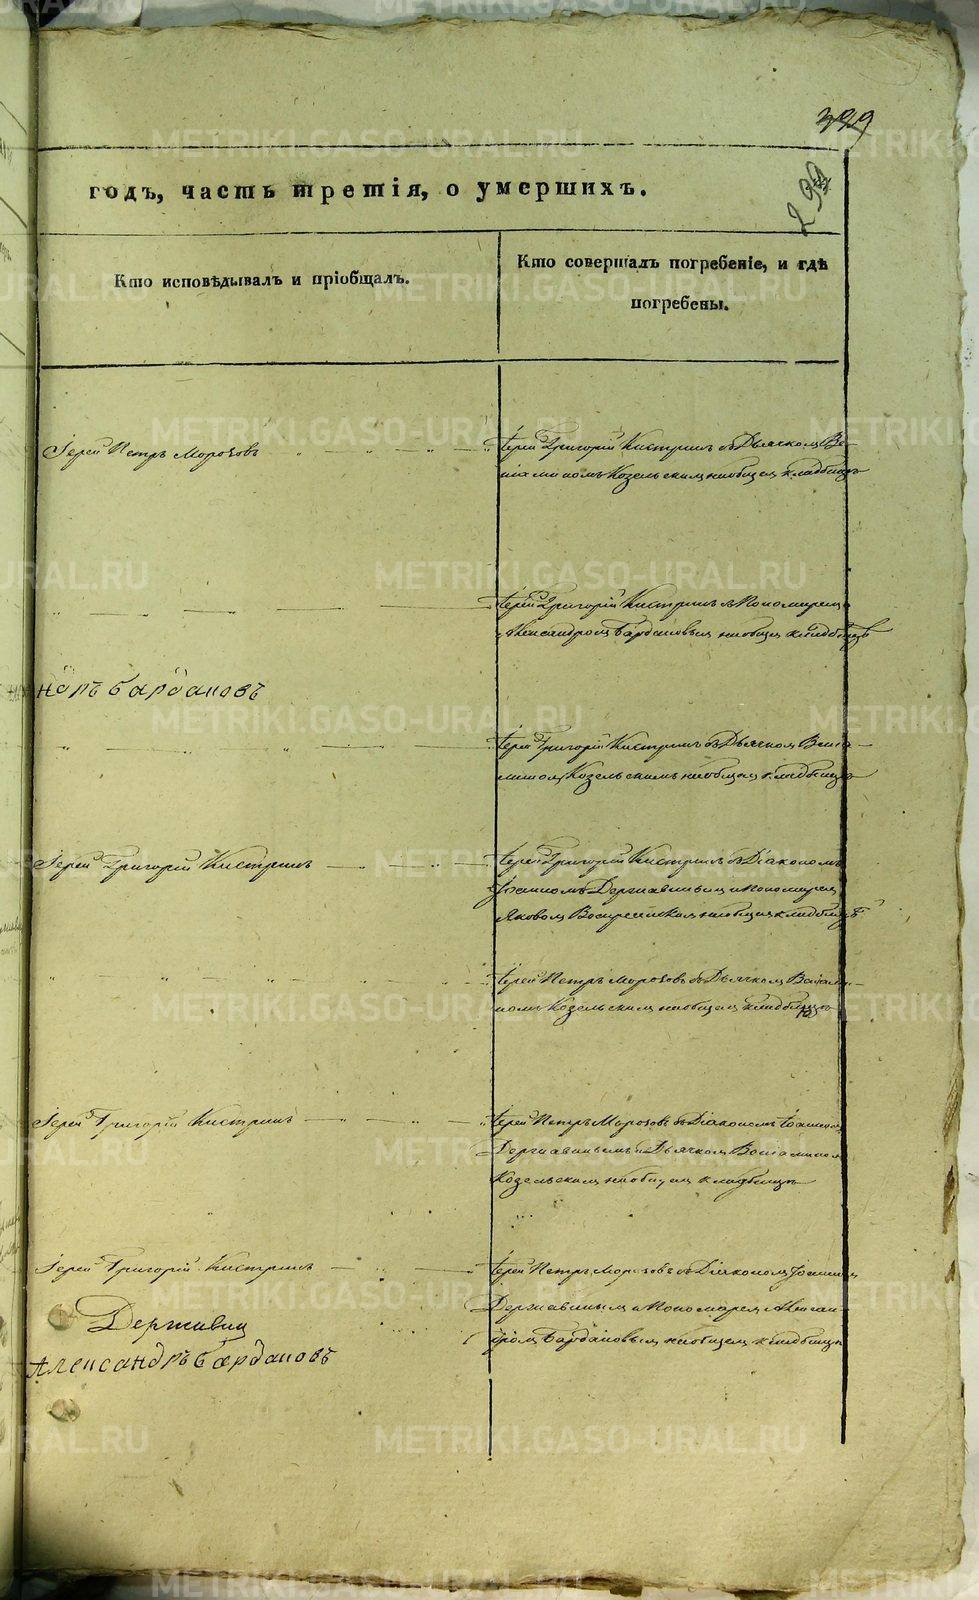 399
299
годъ, часть третія, о умершихъ.
Кто исповѣдывалъ и пріобщалъ.
Кто совершалъ погребеніе, и гдѣ
погребены.
Іерей Петръ Морозовъ
Іерей Григорій Кистринъ съ Дьячком Ве-
ніаминомъ Козельским на общем кладбищѣ
Іерей Григорій Кистринъ съ Пономарем
Александром Бардановым на общем кладбищѣ
Барданов
Іерей Григорій Кистринъ съ Дьячком Вениа-
мином Козельскимъ на общем кладбищѣ
Іерей Григорій Кистринъ
Іерей Григорій Кистринъ съ Діакономъ
Іоанномъ Державиным и Пономарем
Яковом Воскресенским на общем кладбищѣ
Іерей Петръ Морозовъ съ Дьячком Веніами-
номъ Козельским на общем кладбищѣ
Іерей Григорій Кистринъ
Іерей Петръ Морозовъ съ Діакономъ Іоанном
Державинымъ и Дьячком Веніамином
Козельским на общем кладбищѣ
Іерей Григорій Кистринъ
Іерей Петръ Морозовъ съ Діаконом Іоанном
Державиным и Пономарем Алексан-
дром Бардановым на общем кладбищѣ
Державин
Александръ Бардановъ
METRIKI.GASO-URAL.RU